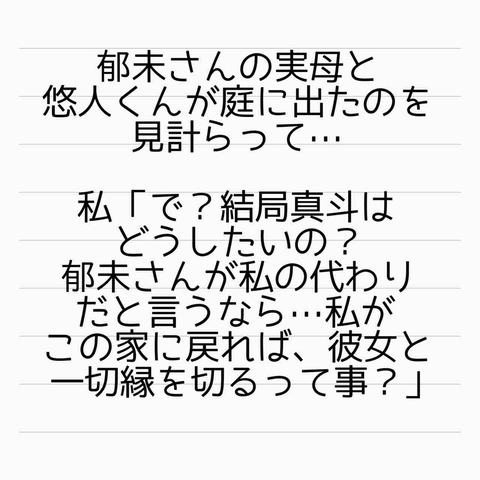 郁未さんの実母と
悠人くんが庭に出たのを
見計らって…
私「で？結局真斗は
どうしたいの？
郁未さんが私の代わり
だと言うなら…私が
この家に戻れば、彼女と
一切縁を切るって事？」